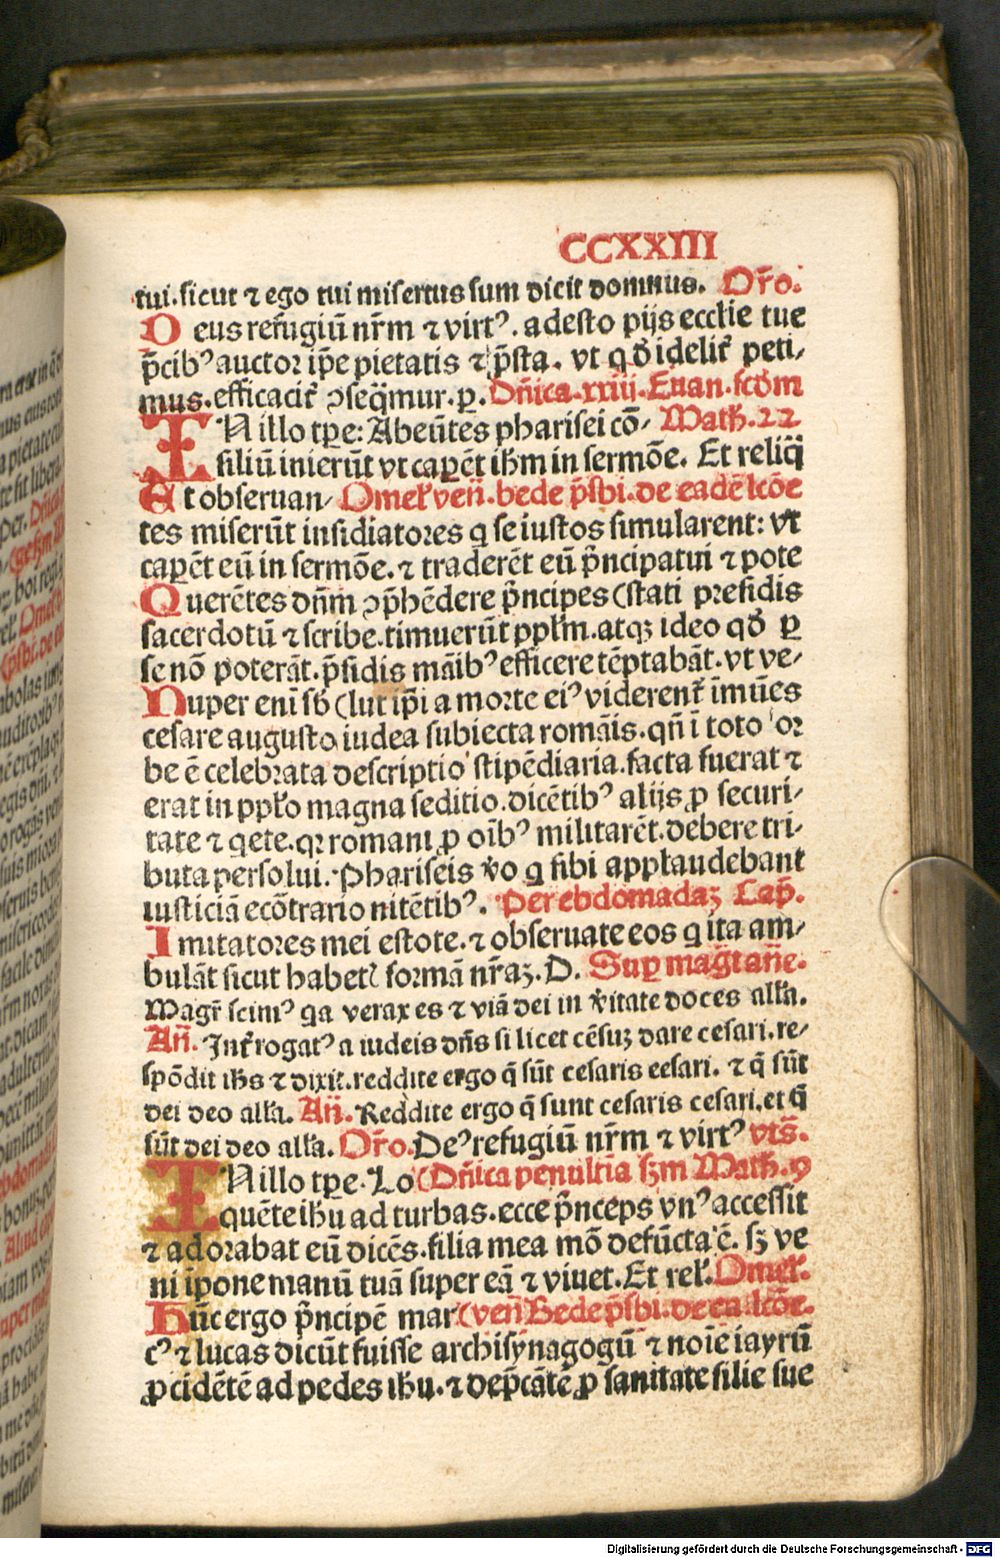 CCXXIII
tui. sicut ⁊ ego tui misertus sum dicit dominus. Or̃o.
Deus refugiũ nr̃m ⁊ virtꝰ. adesto pijs ecclie tue
p̃cibꝰ auctor ip̃e pietatis ⁊ p̃sta. vt qd̕ fidelit̕ peti⸗
mus. efficacit̕ ꝯseq̃mur. p. Dñica. xxiij. Euan. scd̕m
IN illo tꝑe: Abeũtes pharisei cõ⸗ Math. 22
siliũ inierũt vt caꝑẽt ih̃m in sermõe. Et reliq̃
Et obseruan⸗ Omel̕ veñ. bede p̃sbi. de eadẽ lcõe
tes miserũt insidiatores q se iustos simularent: vt
caꝑẽt eũ in sermõe. ⁊ traderẽt eũ p̃ncipatui ⁊ pote
Querẽtes dñm ꝯp̃hẽdere p̃ncipes (stati presidis
sacerdotũ ⁊ scribe. timuerũt ppl̕m. atqꝫ ideo qd̕ ꝑ
se nõ poterãt. p̃sidis mãibꝰ efficere tẽptabãt. vt ve⸗
Nuper eni sb̕ (lut ip̃i a morte eiꝰ viderent̕ ĩmũes
cesare augusto iudea subiecta romãis. qñ ĩ toto or
be ẽ celebrata descriptio stipẽdiaria. facta fuerat ⁊
erat in ppl̕o magna seditio. dicẽtibꝰ alijs ꝓ securi⸗
tate ⁊ qete. qꝛ romani ꝓ oĩbꝰ militarẽt. debere tri⸗
buta persolui. Phariseis v̕o q sibi applaudebant
iusticiã ecõtrario nitẽtibꝰ. Per ebdomadaꝫ Cap̃.
Imitatores mei estote. ⁊ obseruate eos q ita am⸗
bulãt sicut habetꝭ formã nr̃aꝫ. D. Suꝑ magñ añe.
Magr̕ scimꝰ qa verax es ⁊ viã dei in v̕itate doces all̕a.
Añ. Int̕rogatꝰ a iudeis dñs si licet cẽsuꝫ dare cesari. re⸗
spõdit ihs ⁊ dixit. reddite ergo q̃ sũt cesaris cesari. ⁊ q̃ sũt
dei deo all̕a. Añ. Reddite ergo q̃ sunt cesaris cesari. et q̃
sũt dei deo all̕a. Or̃o. Deꝰ refugiũ nr̃m ⁊ virtꝰ vts̃.
IN illo tꝑe. Lo (Dñica penultĩa sꝫm Math. 9
quẽte ihu ad turbas. ecce p̃nceps vnꝰ accessit
⁊ adorabat eũ dicẽs. filia mea mõ defũcta ẽ. sꝫ ve
ni ĩpone manũ tuã super eã ⁊ viuet. Et rel̕. Omel̕.
Hũc ergo p̃ncipẽ mar (veñ Bede p̃sbi. de ea. lcõe.
cꝰ ⁊ lucas dicũt fuisse archisynagogũ ⁊ noĩe iayrũ
ꝓcidẽtẽ ad pedes ihu. ⁊ dep̃cãtẽ ꝓ sanitate filie sue
Digitalisierung gefördert durch die Deutsche Forschungsgemeinschaft - DFG